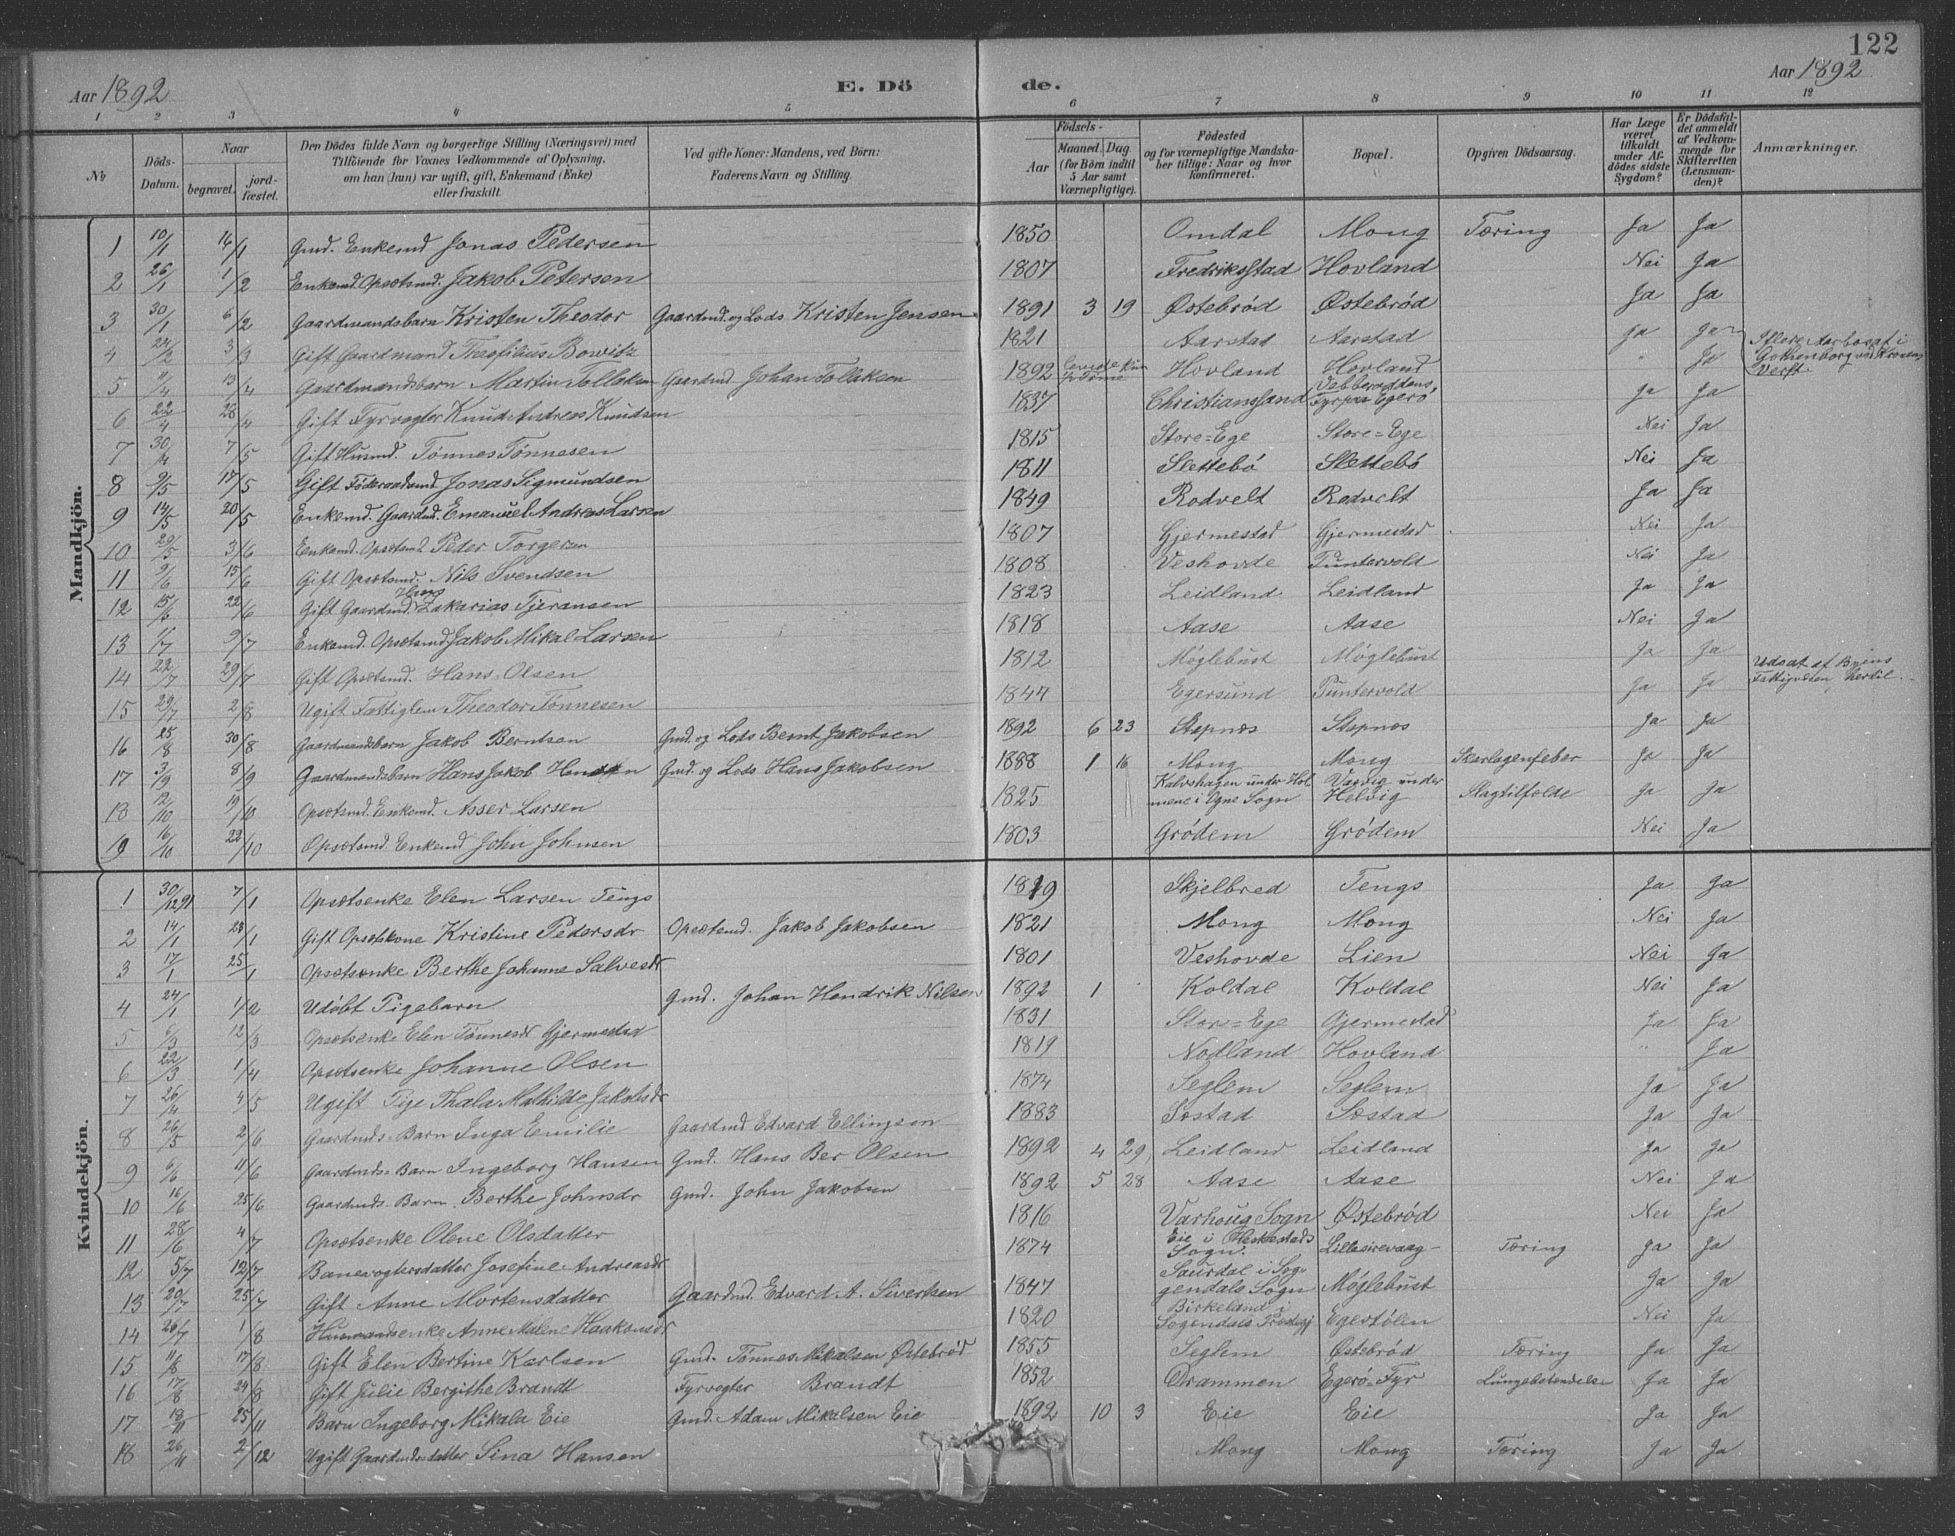 122
Aar 1892 E. Dö de. Aar 1892
1 2 3 4 5 6 7 8 9 10 11 12
No
Döds-Datum.
Naar
begravet.
jord-fæstet.
Den Dödes fulde Navn og borgerlige Stilling (Næringsvei) med
Tilföiende for Voxnes Vedkommende af Oplysning,
om han (hun) var ugift, gift, Enkemand (Enke)
eller fraskilt.
Ved gifte Koner: Mandens, ved Börn:
Faderens Navn og Stilling.
Födsels-
Aar
Maaned. Dag.
(for Börn indtil
5 Aar samt
Værnepligtige).
Födested
og for værnepligtige Mandska-
ber tillige: Naar og hvor
konfirmeret.
Bopæl.
Opgiven Dödsaarsag.
Har Læge
været
tilkaldt
under Af-
dödes sidste
Sygdom?
Er Dödsfal-
det anmeldt
af Vedkom-
mende for
Skifteretten
(Lensman-
den)?
Anmærkninger.
Mandkjön.
1 10/1 14/1 Gmd. Enkemd Jonas Pedersen 1850 Omdal Mong Tæring Ja Ja
2 26/1 1/2 Enkemd. Opsætsmd. Jakob Petersen 1807 Fredriksstad Hovland Nei Ja
3 30/1 6/2 Gaardmandsbarn Kristen Theodor Gaardmd. og Lods Kristen Jensen 1891 3 19 Østebrød Østebrød Ja Ja
4 24/2 3/3 Gift Gaardmand Theofilius Bowitz 1821 Aarstad Aarstad Ja Ja
5 11/4 13/4 Gaardmandsbarn Martin Tollaksen Gaardmd Johan Tollaksen 1892 Hovland Hovland " Ja
6 22/4 28/4 Gift Fyrvogter Knud Andreas Knudsen 1837 Christianssand Fyrpas Egerö Ja Ja
7 30/4 7/5 Gift Husmd. Tönnes Tönnesen 1815 Store-Ege Store-Ege Nei Ja
8 9/5 17/5 Gift Föderaadsmd Jonas Sigmundsen 1811 Slettebö Slettebö Nei Ja
9 14/5 20/5 Enkemd. Gaardmd. Emanuel Andreas Larsen 1849 Rodvelt Rodvelt Ja Ja
10 29/5 3/6 Enkemd. Opsætsmd Peder Torgersen 1807 Gjermestad Gjermestad Nei Ja
11 9/6 15/6 Gift Opsætsmd. Nils Svendsen 1808 Veshovde Puntervold Nei Ja
12 15/6 22/6 Gift Gaardmd. Zakarias Tjeransen 1823 Leidland Leidland Ja Ja
13 1/7 9/7 Enkemd. Opsætsmd Jakob Mikal Larsen 1818 Aase Aase Nei Ja
14 22/7 29/7 Gift Opsætsmd. Hans Olsen 1812 Møglebust Møglebust Ja Ja
15 29/7 2/8 Ugift Fattiglem Theodor Tönnesen 1847 Egersund Puntervold Ja Ja Udsat af Byens Fattigvæsen hertil.
16 25/8 30/8 Gaardmandsbarn Jakob Berntsen Gmd. og Lods Bernt Jakobsen 1892 6 23 Stapnes Stapnes Ja Ja
17 3/9 8/9 Gaardmandsbarn Hans Jakob Hansen Gmd. og Lods Hans Jakobsen 1888 1 16 Mong Mong Skarlagenfeber Ja Ja
18 12/10 19/10 Opsætsmd. Enkemd. Asser Larsen 1825 Kalvshagen under Hol- mene i Ogne Sogn under Helvig Slagtilfelde Ja Ja
19 16/10 22/10 Opsætsmd Enkemd John Johnsen 1803 Grödem Grödem Nei Ja
Kvindekjön.
1 30/12 91 7/1 Opsætsenke Elen Larsen Tengs 1819 Skjelbred Tengs Ja Ja
2 14/1 23/1 Gift Opsætskone Kristine Pedersdr Opsætsmd. Jakob Jakobsen 1821 Mong Mong Nei Ja
3 17/1 25/1 Opsætsenke Berthe Johanne Salvesdr 1801 Veshovde Lien Nei Ja
4 24/1 1/2 Udöbt Pigebarn Gmd. Johan Hendrik Nilsen 1892 1 Koldal Koldal Nei Ja
5 6/3 12/3 Opsætsenke Elen Tönnesdr Gjermestad 1831 Stor-Ege Gjermestad Ja Ja
6 22/3 1/4 Opsætsenke Johanne Olsen 1819 Nodland Hovland " Ja
7 26/4 4/5 Ugift Pige Thala Mathilde Jakobsdr 1874 Seglem Seglem Ja Ja
8 26/5 2/6 Gaardmds. Barn Inga Emilie Gaardmd Edvard Ellingsen 1883 Sæstad Sæstad Ja Ja
9 6/6 11/6 Gaardmds. Barn Ingeborg Hansen Gmd. Hans Ber Olsen 1892 4 29 Leidland Leidland Ja Ja
10 16/6 25/6 Gaardmds. Barn Berthe Johnsdr Gmd. John Jakobsen 1892 5 28 Aase Aase Nei Ja
11 28/6 4/7 Opsætsenke Olene Olsdatter 1816 Varhoug Sogn Østebröd Nei Ja
12 5/7 12/7 Banevogtersdatter Josefine Andreasdr 1874 Eie i Heskestads Sogn. Lillesirevaag Tæring Ja Ja
13 20/7 25/7 Gift Anne Mortensdatter Gaardmd. Edvard A. Sivertsen 1847 Saurdal i Sog- gendals Sogn Møglebust Ja Ja
14 26/7 1/8 Husmandsenke Anne Malene Haakonsdr 1820 Birkeland i Sogendals Prestgj Egestölen Nei Ja
15 11/8 17/8 Gift Elen Bertine Karlsen Gmd. Tönnes Mikalsen Østebröd 1855 Seglem Østebröd Tæring Ja Ja
16 17/8 24/8 Gift Julie Bergithe Brandt Fyrvogter Brandt 1852 Drammen Egerö-Fyr Ja Ja
17 18/11 25/11 Barn Ingeborg Mikala Eie Gmd. Adam Mikalsen Eie 1892 10 3 Eie Eie Ja Ja
18 26/11 2/12 Ugift Gaardmdsdatter Sina Hansen Mong Mong Tæring Ja Ja